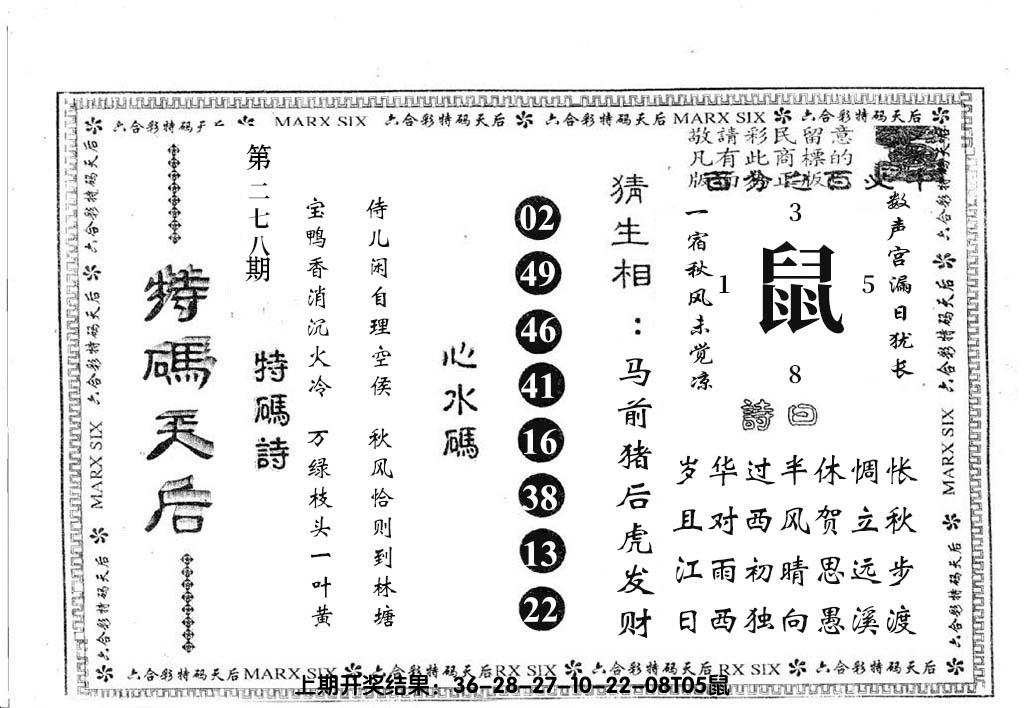 六合彩特码天后 MARX SIX 六合彩特码天后 六合彩特码天后 MARX SIX 六合彩特码天后
敬請彩民留意
凡有此商標的
版面为正版
数声宫漏日犹长
3
鼠
1
5
8
一宿秋风未觉凉
詩曰
岁华过半休惆怅
且对西风贺立秋
江雨初晴思远步
日西独向愚溪渡
猜生相：马前猪后虎发财
02
49
46
41
16
38
13
22
心水碼
侍儿闲自理空侯 秋风恰则到林塘
宝鸭香消沉火冷 万绿枝头一叶黄
特碼詩
第二七八期
特碼天后
六合彩特码天后
六合彩特码天后
MARX SIX
六合彩特码天后
六合彩特码天后
六合彩特码天后
MARX SIX
六合彩特码天后
六合彩特码天后 MARX SIX 六合彩特码天后 RX SIX 六合彩特码天后 RX SIX 六合彩特码天后
上期开奖结果：36-28-27-10-22-08T05鼠